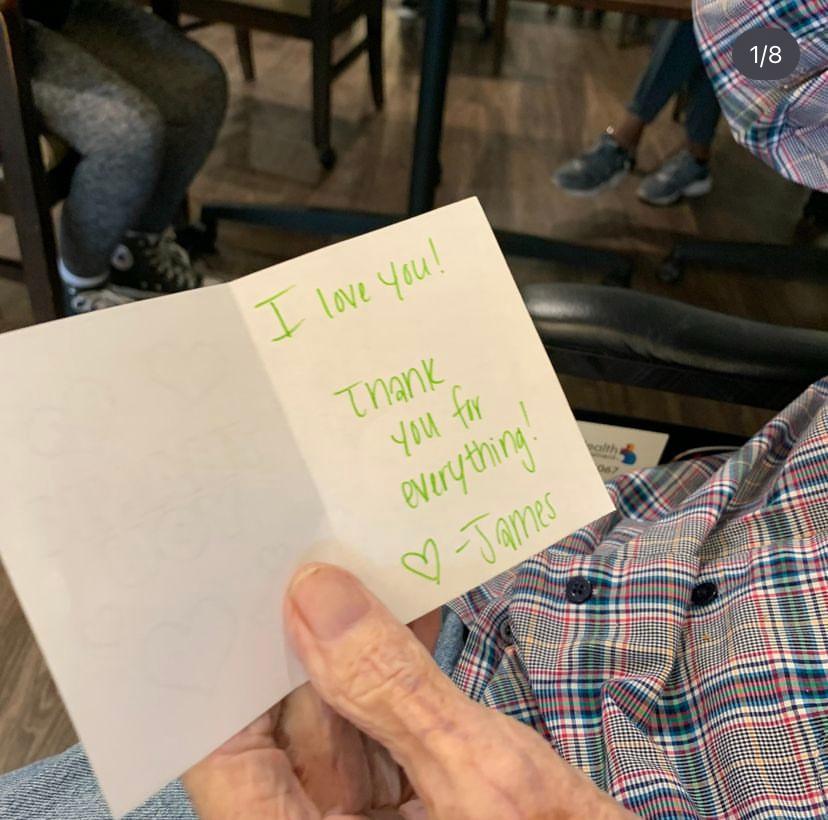 1/8
I love you!
Thank
you for
everything!
♡ -James
ealth
067